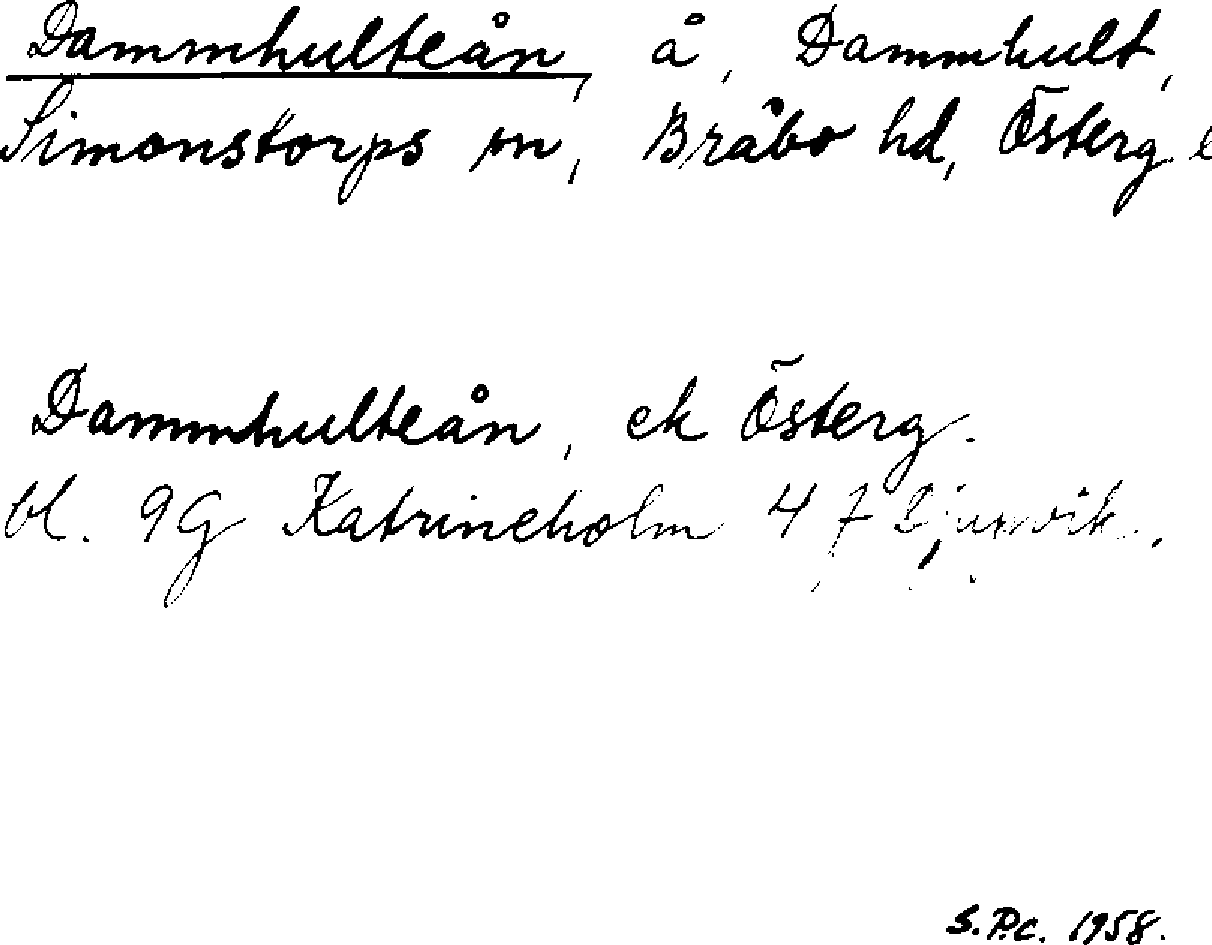 Dammhulteån, å, Dammhult,
Simonstorps sn, Bråbo hd, Österg. l
Dammhulteån, ek Österg.
bl. 9G Katrineholm 4 f
S.P.c. 1958.